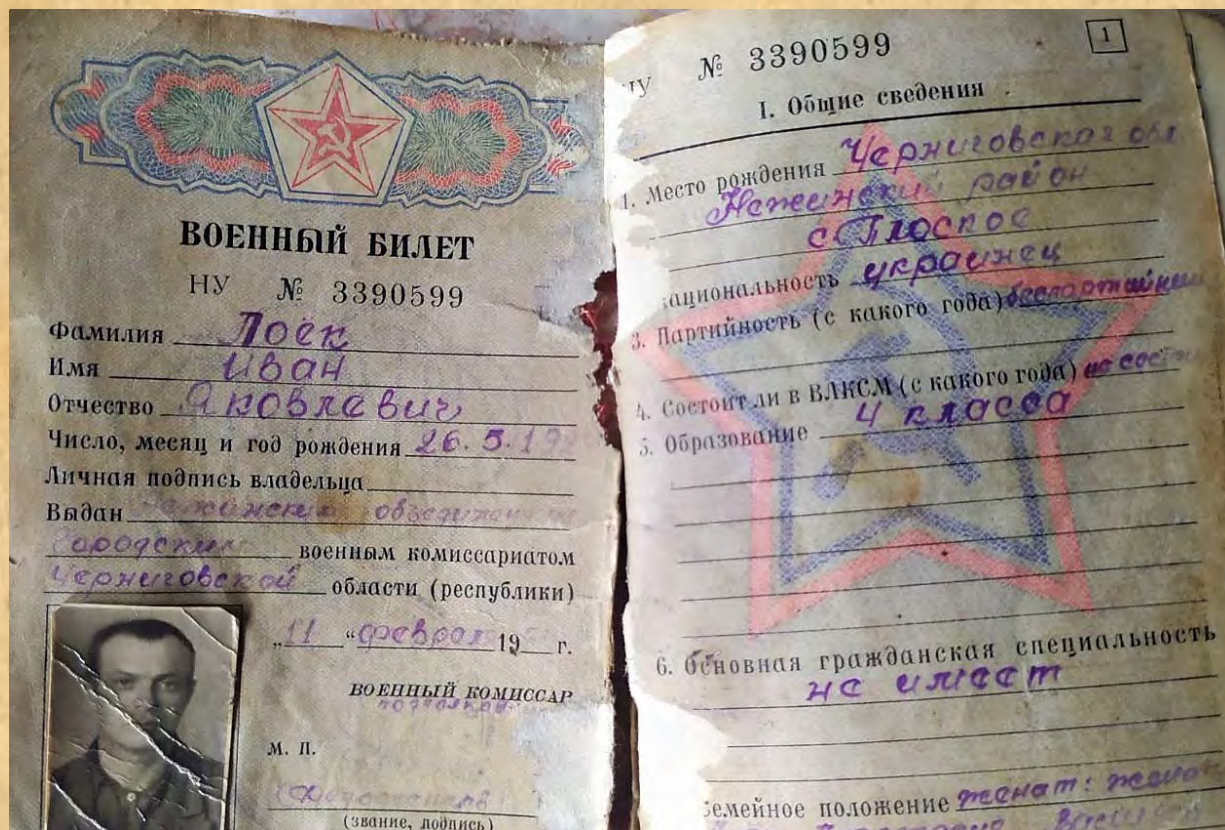 ВОЕННЫЙ БИЛЕТ
НУ № 3390599
Фамилия Лоек
Имя Иван
Отчество Яковлевич
Число, месяц и год рождения 26.5.19
Личная подпись владельца
Выдан
Городским военным комиссариатом
Черниговской области (республики)
„11“ феврал 19 г.
ВОЕННЫЙ КОМИССАР
М. П.
(звание, подпись)
НУ № 3390599
1
I. Общие сведения
1. Место рождения Черниговская обл.
Нежинский район
с. Плоское
ациональность украинец
3. Партийность (с какого года) беспартийный
4. Состоит ли в ВЛКСМ (с какого года) не состо
5. Образование 4 класса
6. Основная гражданская специальность
не имеет
Семейное положение женат: жена